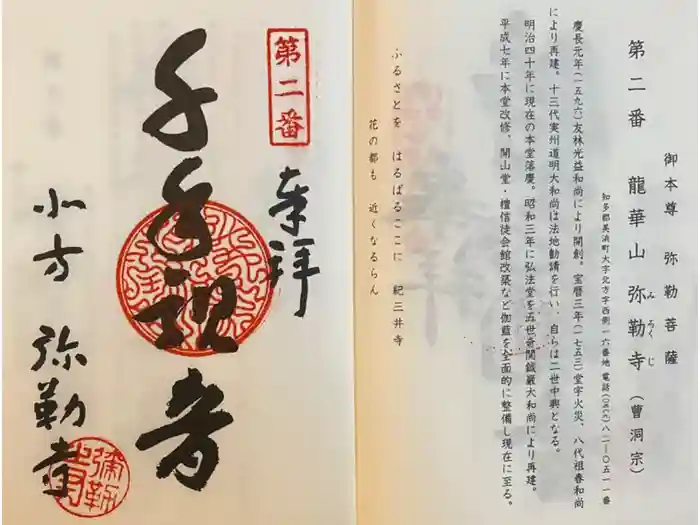 第二番
奉拝
千手観音
北方 弥勒寺
御本尊 弥勒菩薩
第二番 龍華山 弥勒寺(曹洞宗)
みろくじ
知多郡美浜町大字北方字西側一六番地 電話(〇五六九)八二―〇五一一番
慶長元年(一五九六)友林光益和尚により開創。宝暦三年(一七五三)堂宇火災、八代祖春和尚
により再建。十三代実州道明大和尚は法地勧請を行い、自らは二世中興となる。
明治四十年に現在の本堂落慶。昭和三年に弘法堂を五世奇関鉞巖大和尚により再建。
平成七年に本堂改修、開山堂・檀信徒会館改築など伽藍を全面的に整備し現在に至る。
ふるさとを はるばるここに 紀三井寺
花の都も 近くなるらん